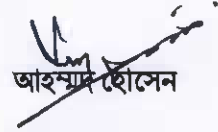 আহম্মদ হোসেন